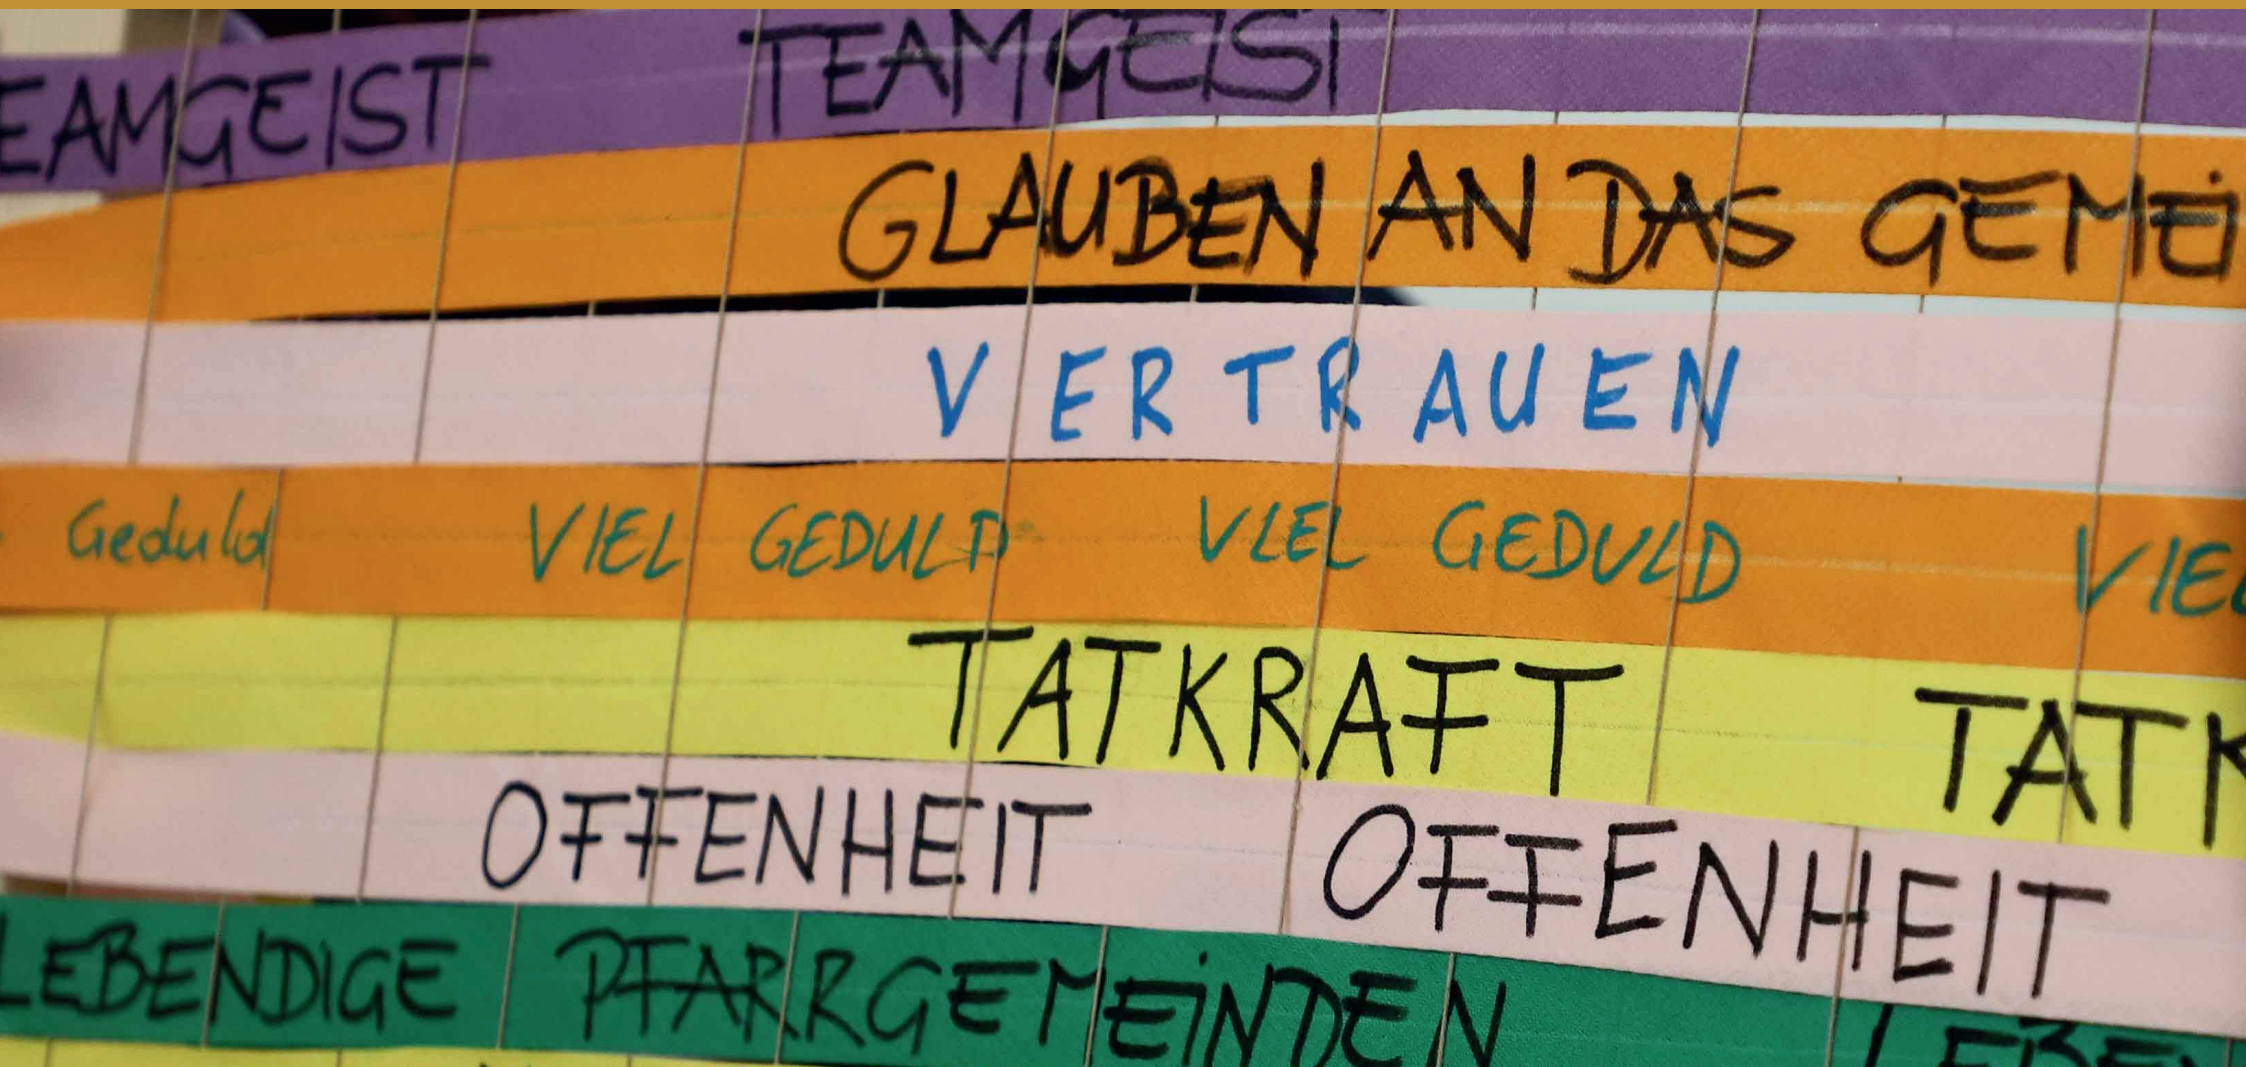 EAMGEIST TEAMGEIST
GLAUBEN AN DAS GEMEI
VERTRAUEN
Geduld VIEL GEDULD VIEL GEDULD VIEL
TATKRAFT TATK
OFFENHEIT OFFENHEIT
LEBENDIGE PFARRGEMEINDEN LEBEN